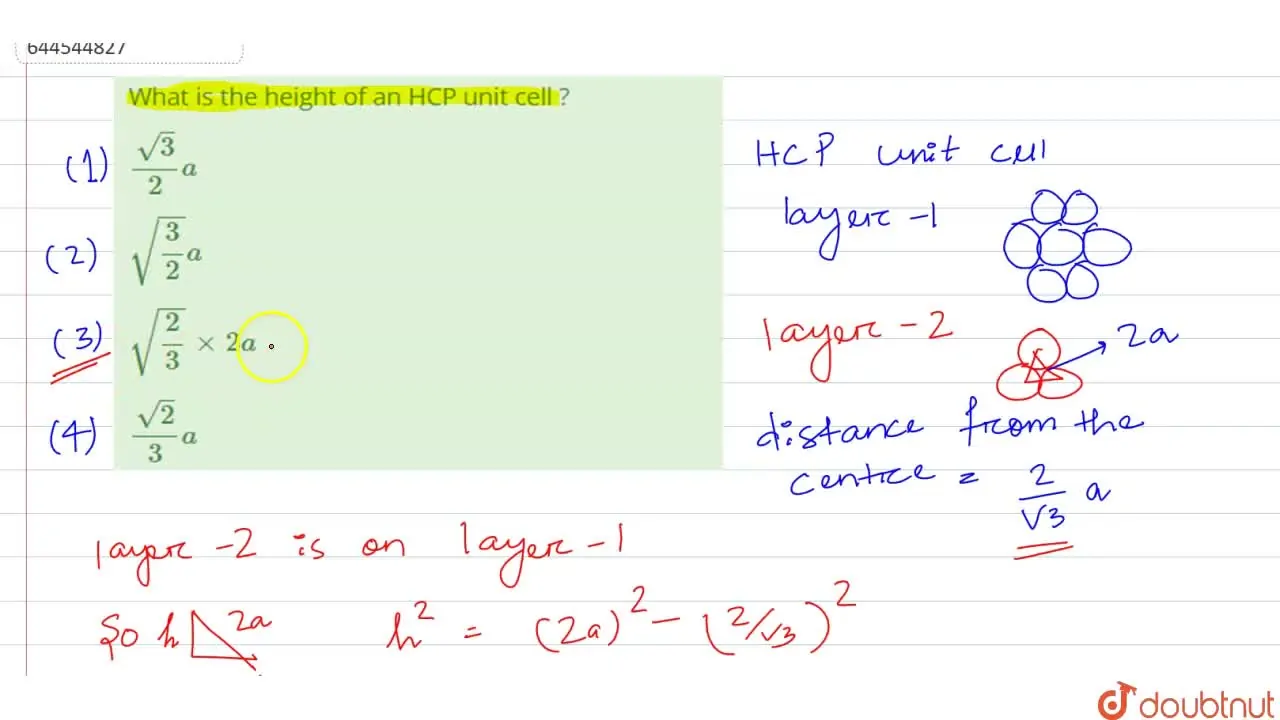 644544827
What is the height of an HCP unit cell ?
(1) √3/2 a
(2) √(3/2) a
(3) √(2/3) × 2a
(4) √2/3 a
HCP unit cell
layer -1
layer -2
2a
distance from the
centre = 2/√3 a
layer -2 is on layer -1
So h 2a h² = (2a)² - (2/√3)²
doubtnut